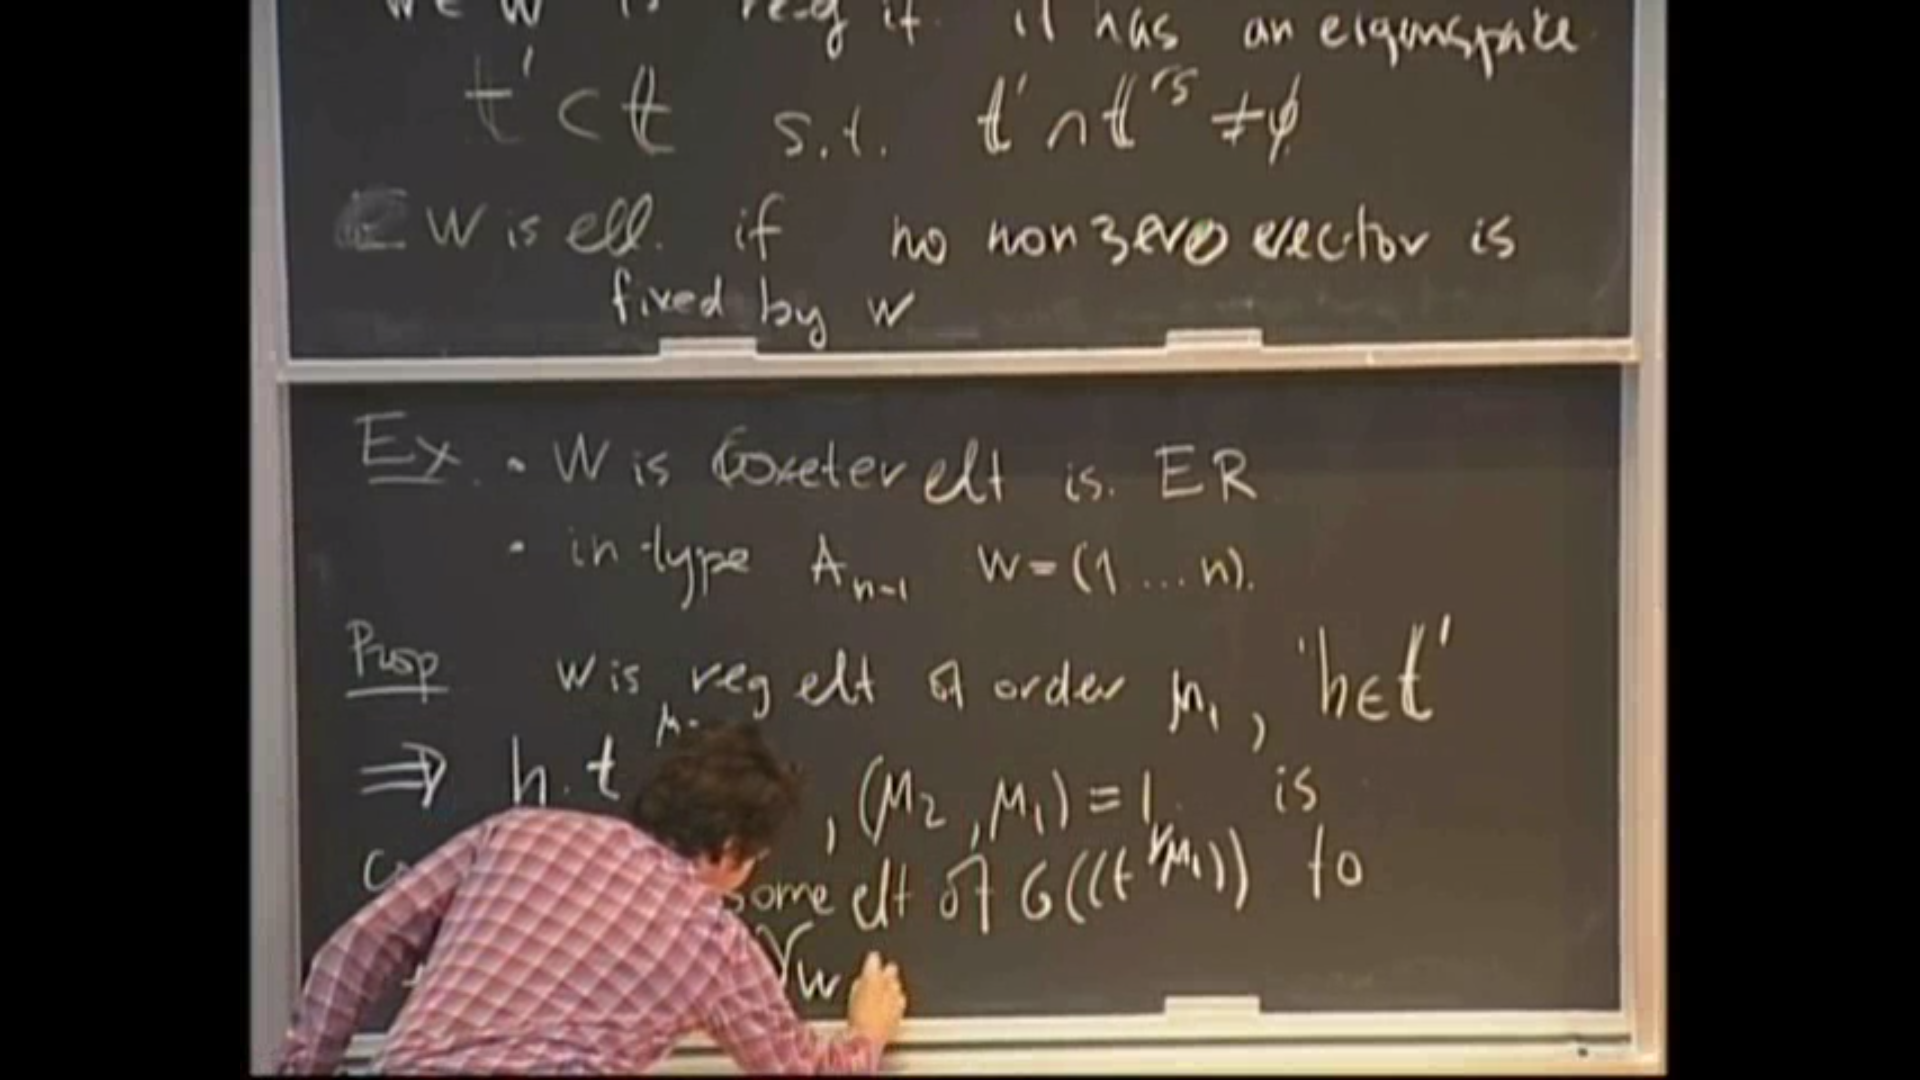 w ∈ W is reg if it has an eigenspace
𝔱' ⊂ 𝔱 s.t. 𝔱' ∩ 𝔱^rs ≠ ∅
w is ell. if no nonzero vector is
fixed by w
Ex. • W is Coxeter elt is. ER
• in type A_{n-1} W = (1 ... n).
Prop w is reg elt of order μ₁, 'h ∈ 𝔱'
⇒ h.t , (μ₂, μ₁) = 1. is
some elt of G((t^{1/μ₁})) to
γ_w